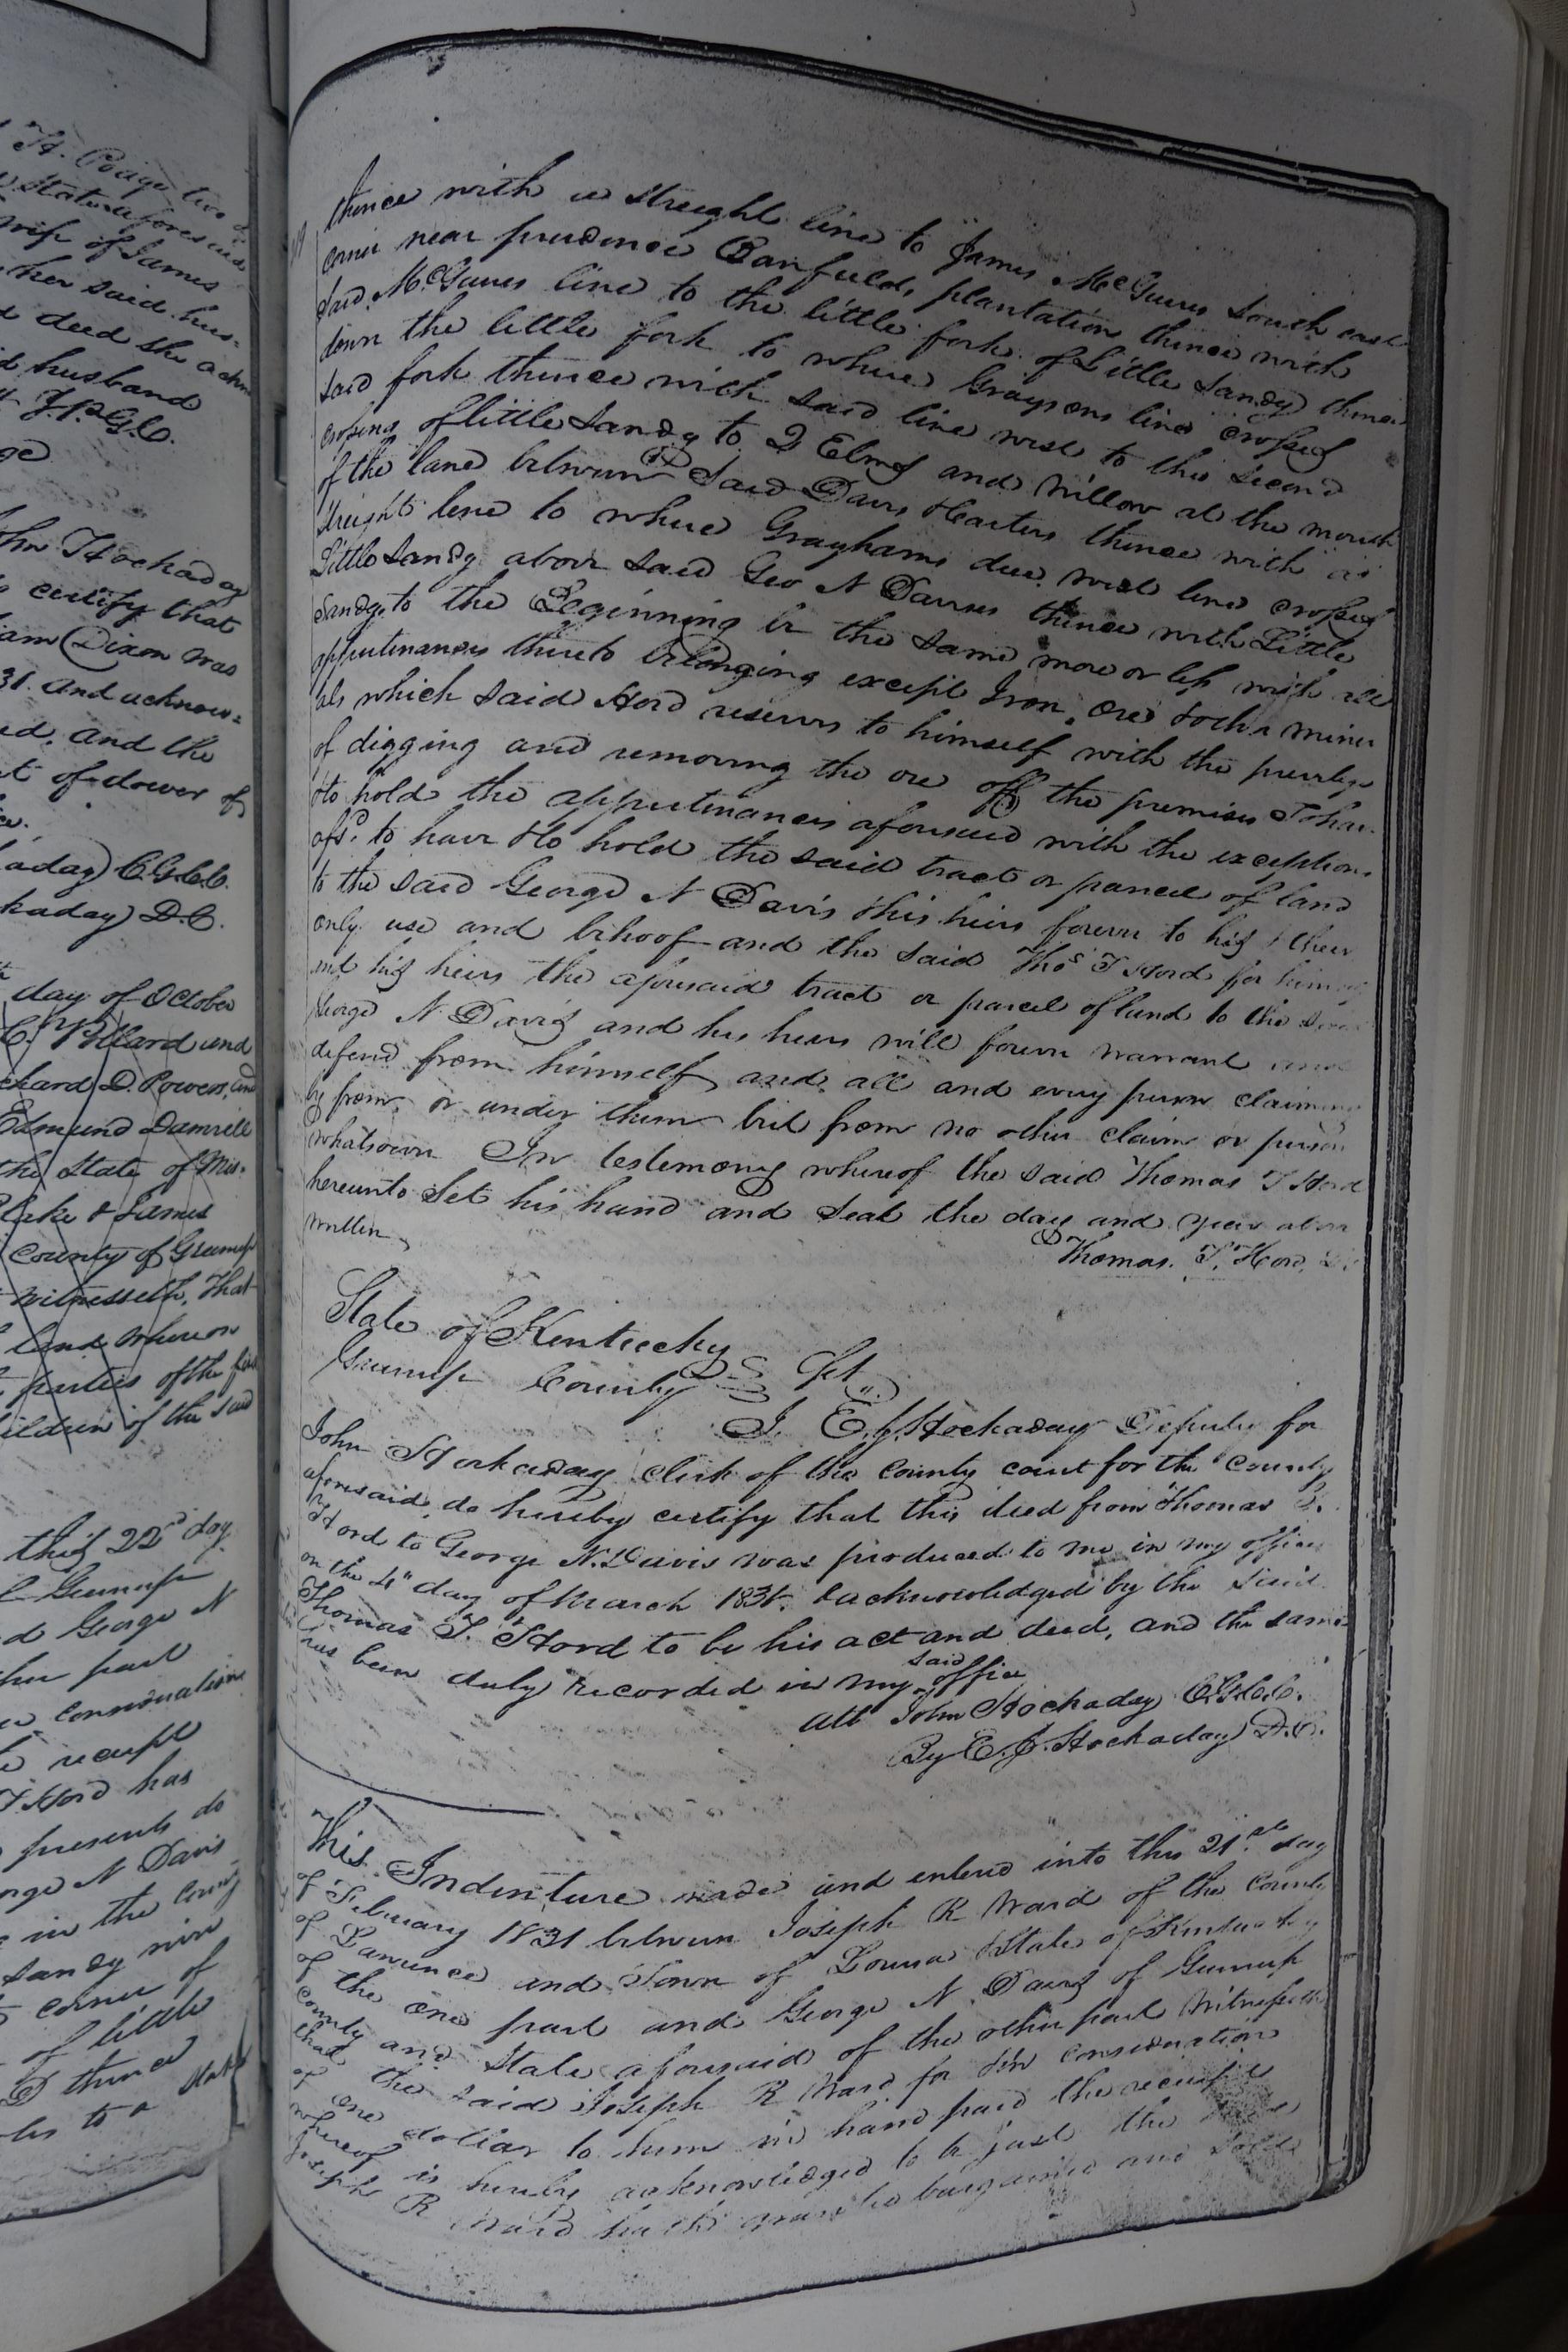 H. Poage two
State aforesaid
wife of James
her said hus-
deed she ackn
husband
J.P.G.C.
John Hockaday
certify that
iam Dixon was
31. and acknow-
ed. and the
t of dower of
aday C.G.C.C.
kaday D.C.
day of October
C. Pollard and
chard D. Powers, and
Edmund Damrill
the State of Mis-
Blake & James
County of Greenup
Witnesseth, That
land whereon
parties of the first
children of the said
this 22d day
Greenup
d George N
her part
consideration
receipt
T. Hord has
presents do
orge N Davis
in the County
Sandy nine
corner of
of little
thence
to a
thence with a streight line to James McGuires South east
corner near prudence Canfields plantation thence with
Said McGuires line to the little fork of Little Sandy thence
down the little fork to where Graysons line crosses
Said fork thence with said line west to the second
crossing of little Sandy to 2 Elms and Willow at the mouth
of the lane between Said Davis & Carters thence with a
streight line to where Grayhams due west line crosses
Little Sandy above said Geo N Davises thence with Little
Sandy to the Beginning be the same more or less with all
appertinances thereto belonging except Iron, ore & other miner
als which said Hord reserves to himself with the privlige
of digging and removing the ore off the premises To have
& to hold the appertinances aforesaid with the exceptions
afsd. to have & to hold the said tract or parcel of land
to the said George N Davis & his heirs forever to his & their
only use and behoof and the said Thos T Hord for himself
and his heirs the aforesaid tract or parcel of land to the said
George N. Davis and his heirs will forever warrant and
defend from himself and all and every person claiming
by from or under them but from no other claim or person
whatsoever In testimony whereof the said Thomas T Hord
hereunto Set his hand and Seal the day and year above
written
Thomas. T. Hord,
State of Kentucky
Greenup County Sct.
I. E. J. Hockaday Deputy for
John Hockaday clerk of the county court for the County
aforesaid, do hereby certify that this deed from Thomas T.
Hord to George N. Davis was produced to me in my office
on the 4" day of March 1831. & acknowledged by the said
Thomas T. Hord to be his act and deed, and the same
has been duly recorded in my said office
Att John Hockaday C.G.C.C.
By E. J. Hockaday D.C.
This Indenture made and entered into this 21st day
of February 1831 between Joseph R Ward of the County
of Lawrence and Town of Louisa & State of Kentucky
of the one part and George N. Davis of Greenup
County and State aforesaid of the other part Witnesseth
that the said Joseph R Ward for & in consideration
of one dollar to him in hand paid the receipt
whereof is hereby acknowledged to be just the
Joseph R Ward hath granted bargained and sold